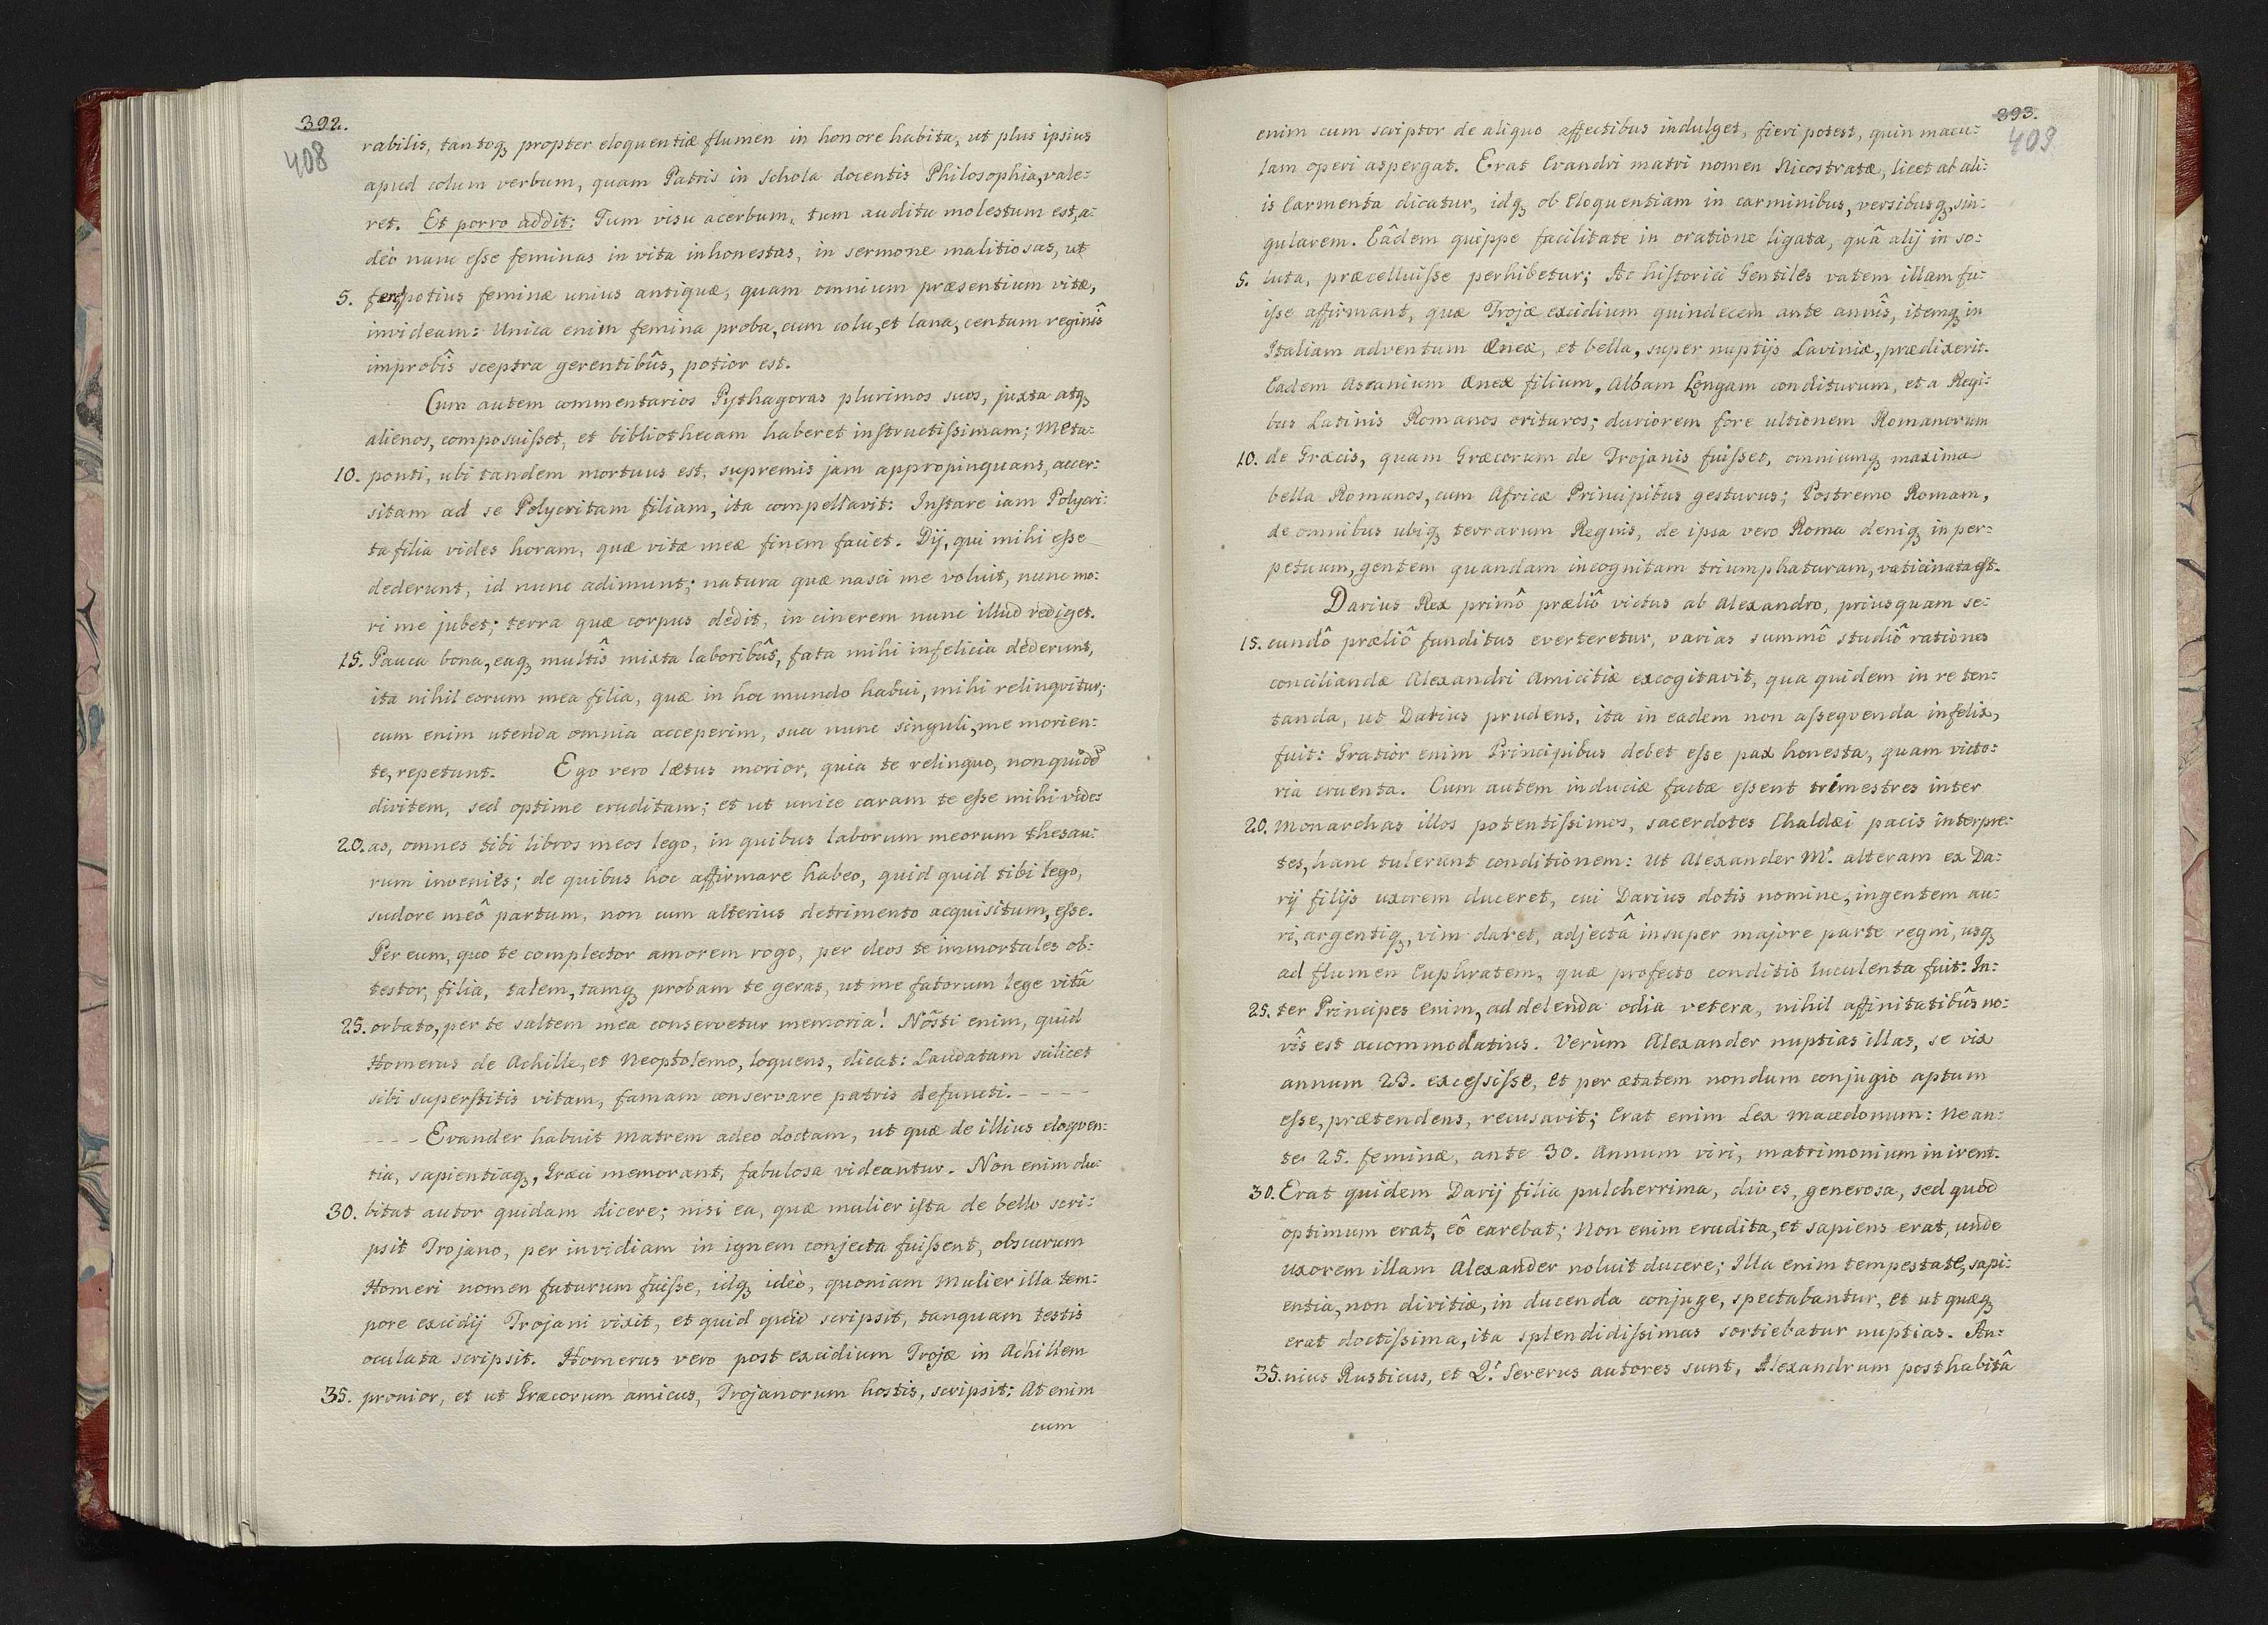 392.
408
rabilis, tantoq; propter eloquentiæ flumen in honore habita, ut plus ipsius
apud colum verbum, quam Patris in schola docentis Philosophia, vale-
ret. Et porro addit: Tum visu acerbum, tum auditu molestum est, a-
deò nunc esse feminas in vita inhonestas, in sermone malitiosas, ut
5. potius feminæ unius antiquæ, quam omnium præsentium vitæ,
invideam: Unica enim femina proba, cum colu, et lana, centum reginîs
improbîs sceptra gerentibûs, potior est.
Cum autem commentarios Pythagoras plurimos suos, juxta atq;
alienos, composuisset, et bibliothecam haberet instructissimam; Meta-
10. ponti, ubi tandem mortuus est, supremis jam appropinquans, accer-
sitam ad se Polycritam filiam, ita compellavit: Instare iam Polycri-
ta filia vides horam, quæ vitæ meæ finem faciet. Dij, qui mihi esse
dederunt, id nunc adimunt; natura quæ nasci me voluit, nunc mo-
ri me jubet; terra quæ corpus dedit, in cinerem nunc illud rediget.
15. Pauca bona, eaq; multîs mixta laboribûs, fata mihi infelicia dederunt,
ita nihil eorum mea filia, quæ in hoc mundo habui, mihi relinqvitur;
cum enim utenda omnia acceperim, sua nunc singuli, me morien-
te, repetunt. Ego vero lætus morior, quia te relinquo, non quidẽ
divitem, sed optime eruditam; et ut unice caram te esse mihi vide-
20. as, omnes tibi libros meos lego, in quibus laborum meorum thesau-
rum invenies; de quibus hoc affirmare habeo, quid quid tibi lego,
sudore meô partum, non cum alterius detrimento acquisitum, esse.
Per eum, quo te complector amorem rogo, per deos te immortales ob-
testor, filia, talem, tamq; probam te geras, ut me fatorum lege vitâ
25. orbato, per te saltem mea conservetur memoria! Nôsti enim, quid
Homerus de Achille, et Neoptolemo, loquens, dicat: Laudatam scilicet
sibi superstitis vitam, famam conservare patris defuncti. - - - -
- - - - Evander habuit Matrem adeo doctam, ut quæ de illius eloqven-
tia, sapientiaq;, Græci memorant, fabulosa videantur. Non enim du-
30. bitat autor quidam dicere; nisi ea, quæ mulier ista de bello scri-
psit Trojano, per invidiam in ignem conjecta fuissent, obscurum
Homeri nomen futurum fuisse, idq; ideò, quoniam Mulier illa tem-
pore excidij Trojani vixit, et quid quid scripsit, tanquam testis
oculata scripsit. Homerus vero post excidium Trojæ in Achillem
35. pronior, et ut Græcorum amicus, Trojanorum hostis, scripsit: At enim
cum
393.
409
enim cum scriptor de aliquo affectibus indulget, fieri potest, quin macu-
lam operi aspergat. Erat Evandri matri nomen Nicostratæ, licet ab ali-
is Carmenta dicatur, idq; ob Eloquentiam in carminibus, versibusq;, sin-
gularem. Eâdem quippe facilitate in oratione ligata, quâ alij in so-
5. luta, præcelluisse perhibetur; Ac historici Gentiles vatem illam fu-
isse affirmant, quæ Trojæ excidium quindecem ante annîs, itemq; in
Italiam adventum Æneæ, et bella, super nuptijs Laviniæ, prædixerit.
Eadem Ascanium Æneæ filium, Albam Longam conditurum, et a Regi-
bus Latinis Romanos orituros; duriorem fore ultionem Romanorum
10. de Græcis, quam Græcorum de Trojanis fuisset, omniumq; maxima
bella Romanos, cum Africæ Principibus gesturus; Postremo Romam,
de omnibus ubiq; terrarum Regnis, de ipsa vero Roma deniq; in per-
petuum, gentem quandam incognitam triumphaturam, vaticinata est.
Darius Rex primô præliô victus ab Alexandro, priusquam se-
15. cundô præliô funditus everteretur, varias summô studiô rationes
conciliandæ Alexandri Amicitiæ excogitavit, qua quidem in re ten-
tanda, ut Darius prudens, ita in eadem non asseqvenda infelix,
fuit: Gratior enim Principibus debet esse pax honesta, quam victo-
ria cruenta. Cum autem induciæ factæ essent trimestres inter
20. Monarchas illos potentissimos, sacerdotes Chaldæi pacis interpre-
tes, hanc tulerunt conditionem: Ut Alexander M. alteram ex Da-
rij filijs uxorem duceret, cui Darius dotis nomine, ingentem au-
ri, argentiq;, vim daret, adjectâ insuper majore parte regni, usq;
ad flumen Euphratem, quæ profecto conditio luculenta fuit: In-
25. ter Principes enim, ad delenda odia vetera, nihil affinitatibûs no-
vîs est accommodatius. Verùm Alexander nuptias illas, se vix
annum 23. excessisse, et per ætatem nondum conjugio aptum
esse, prætendens, recusavit; Erat enim Lex Macedonum: Ne an-
te 25. feminæ, ante 30. Annum viri, matrimonium inirent.
30. Erat quidem Darij filia pulcherrima, dives, generosa, sed quod
optimum erat, eô carebat; Non enim erudita, et sapiens erat, unde
uxorem illam Alexander noluit ducere; Illa enim tempestate, sapi-
entia, non divitiæ, in ducenda conjuge, spectabantur, et ut quæq;
erat doctissima, ita splendidissimas sortiebatur nuptias. An-
35. nius Rusticus, et Q. Severus autores sunt, Alexandrum posthabitâ